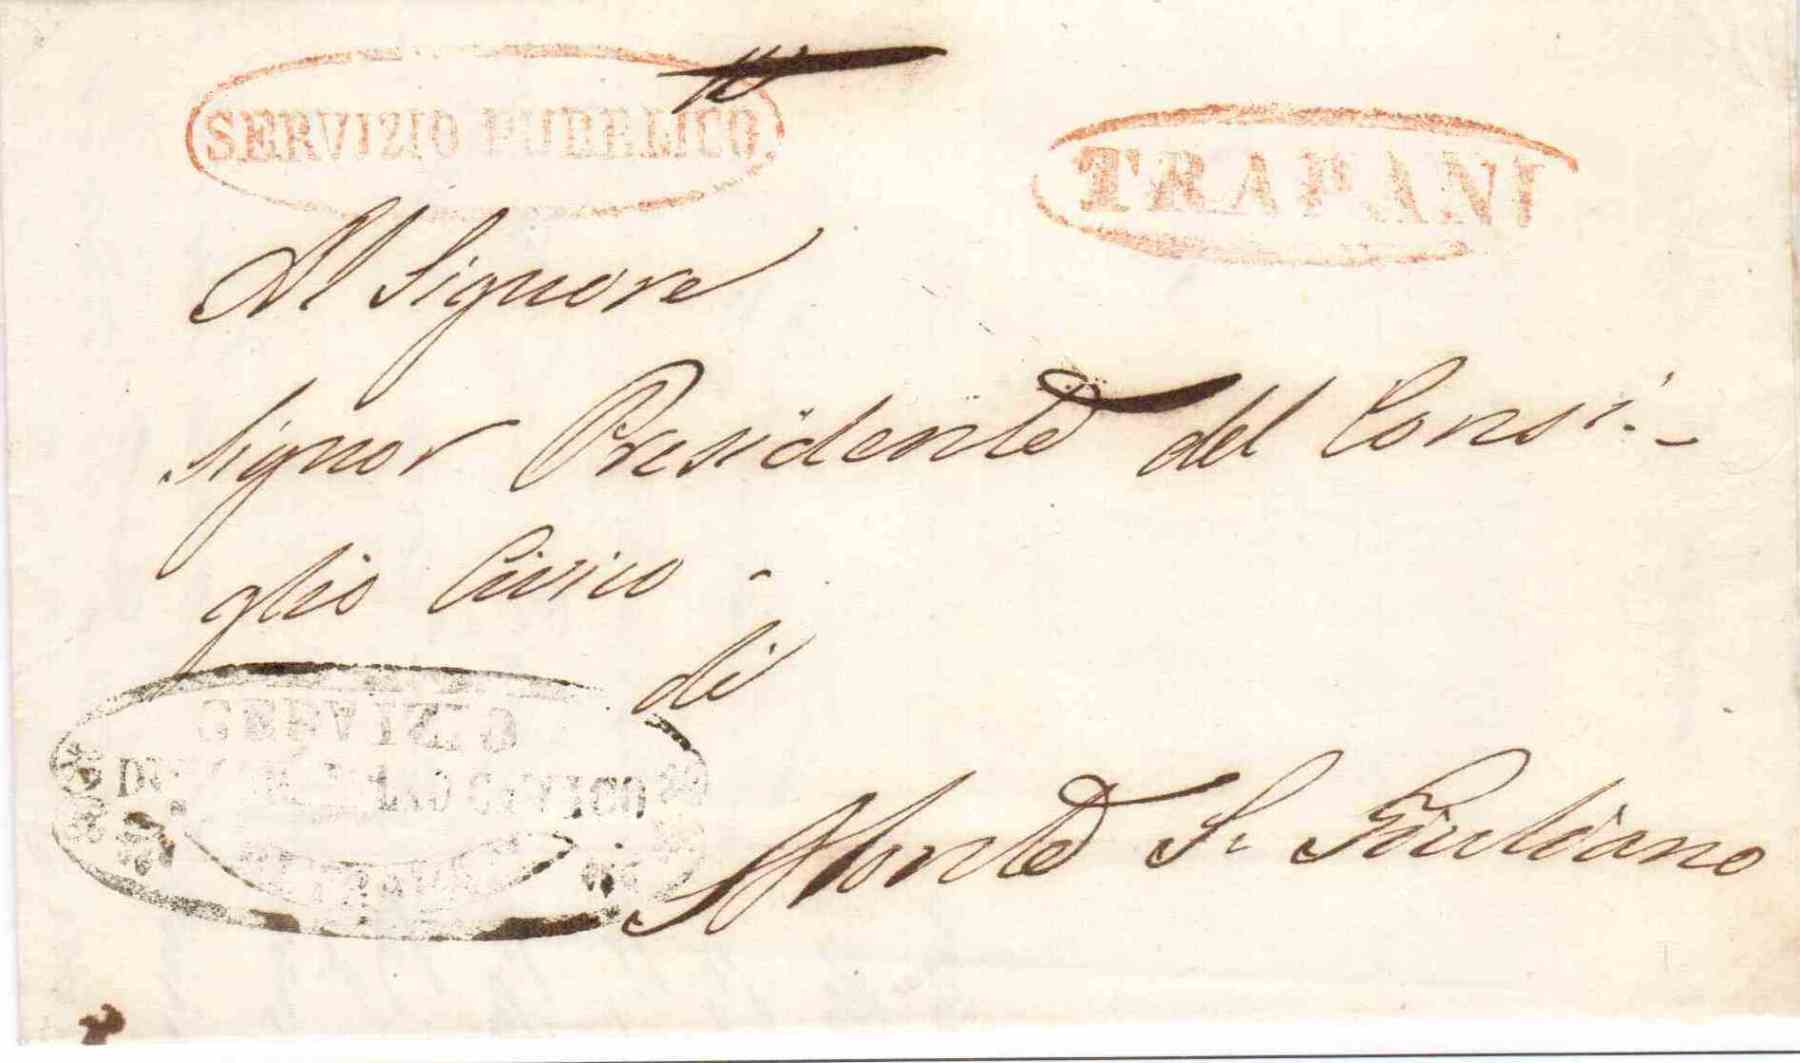 SERVIZIO PUBBLICO
TRAPANI
Al Signore
Signor Presidente del Consi-
glio Civico -
di
SERVIZIO
CIVICO
Monte S. Giuliano